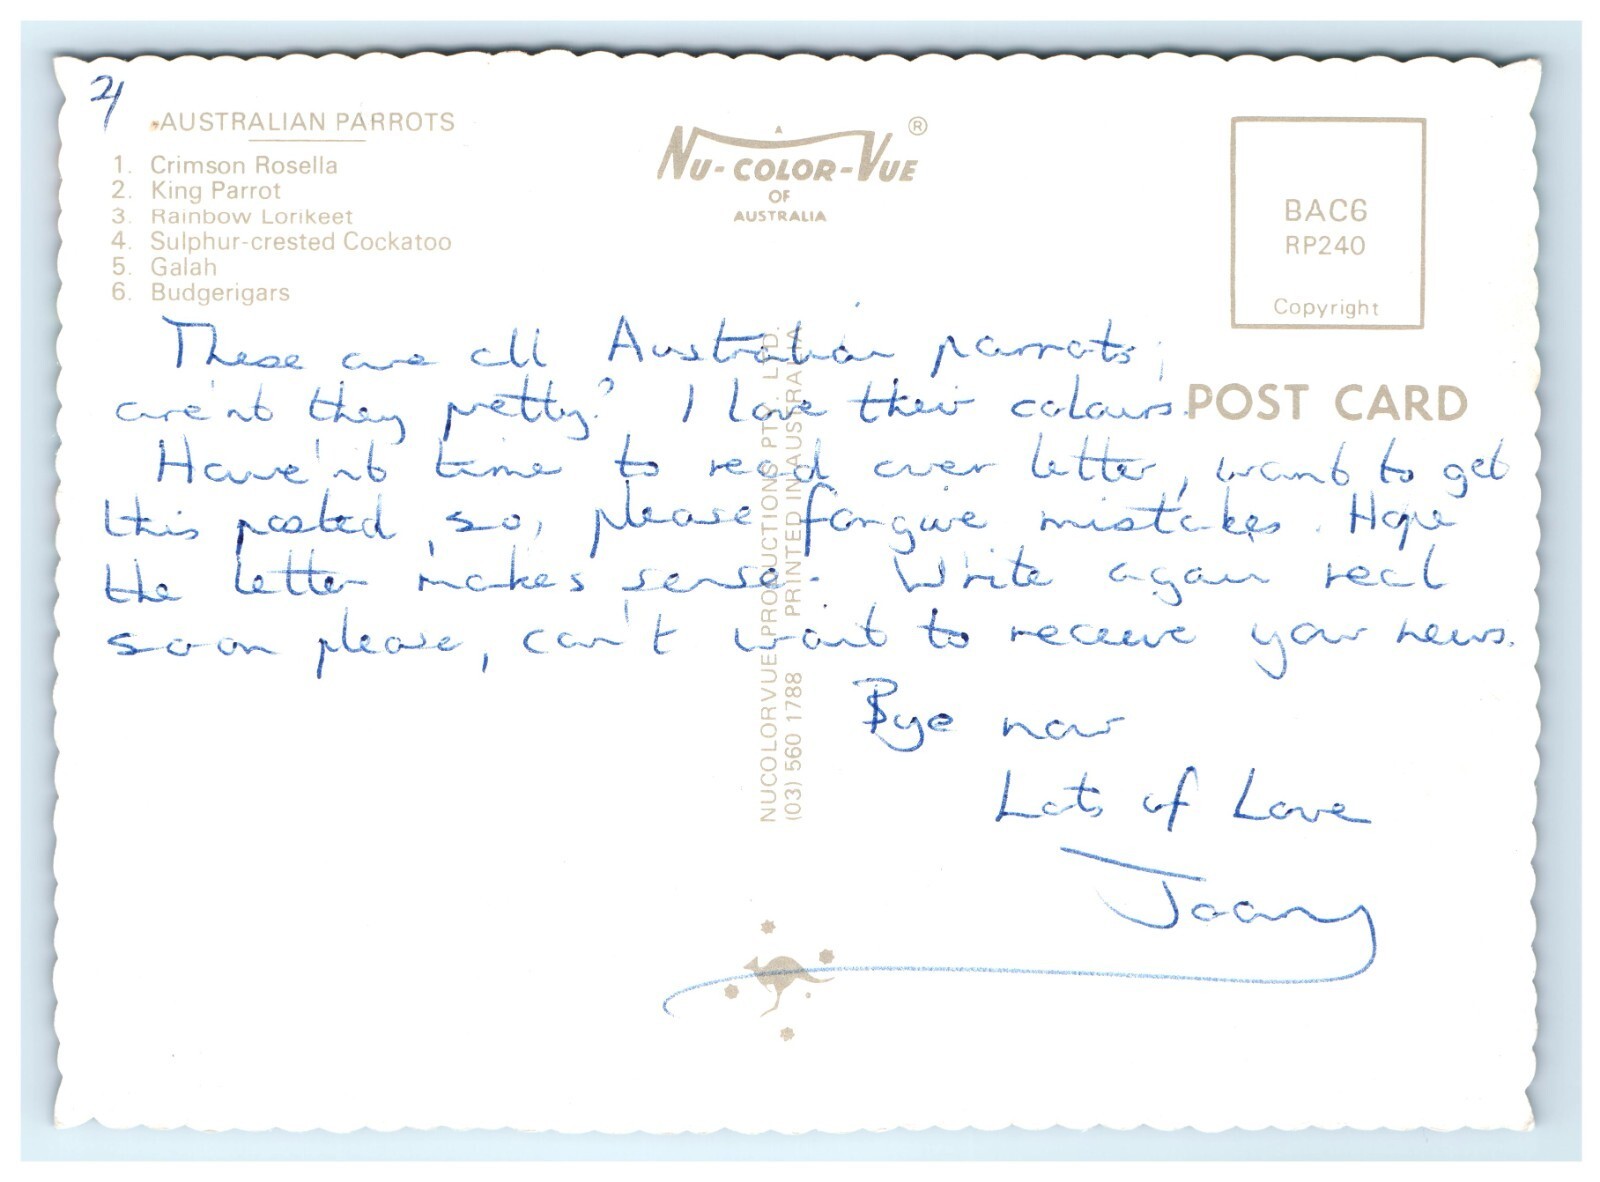 2/
AUSTRALIAN PARROTS
1. Crimson Rosella
2. King Parrot
3. Rainbow Lorikeet
4. Sulphur-crested Cockatoo
5. Galah
6. Budgerigars
A
NU-COLOR-VUE ®
OF
AUSTRALIA
BAC6
RP240
Copyright
POST CARD
These are all Australian parrots,
are'nt they pretty? I love their colours.
Have'nt time to read over letter, want to get
this posted, so, please forgive mistakes. Hope
the letter makes sense. Write again real
soon please, can't wait to receive your news.
Bye now
Lots of Love
Joany
NUCOLORVUE PRODUCTIONS PTY. LTD.
(03) 560 1788 PRINTED IN AUSTRALIA